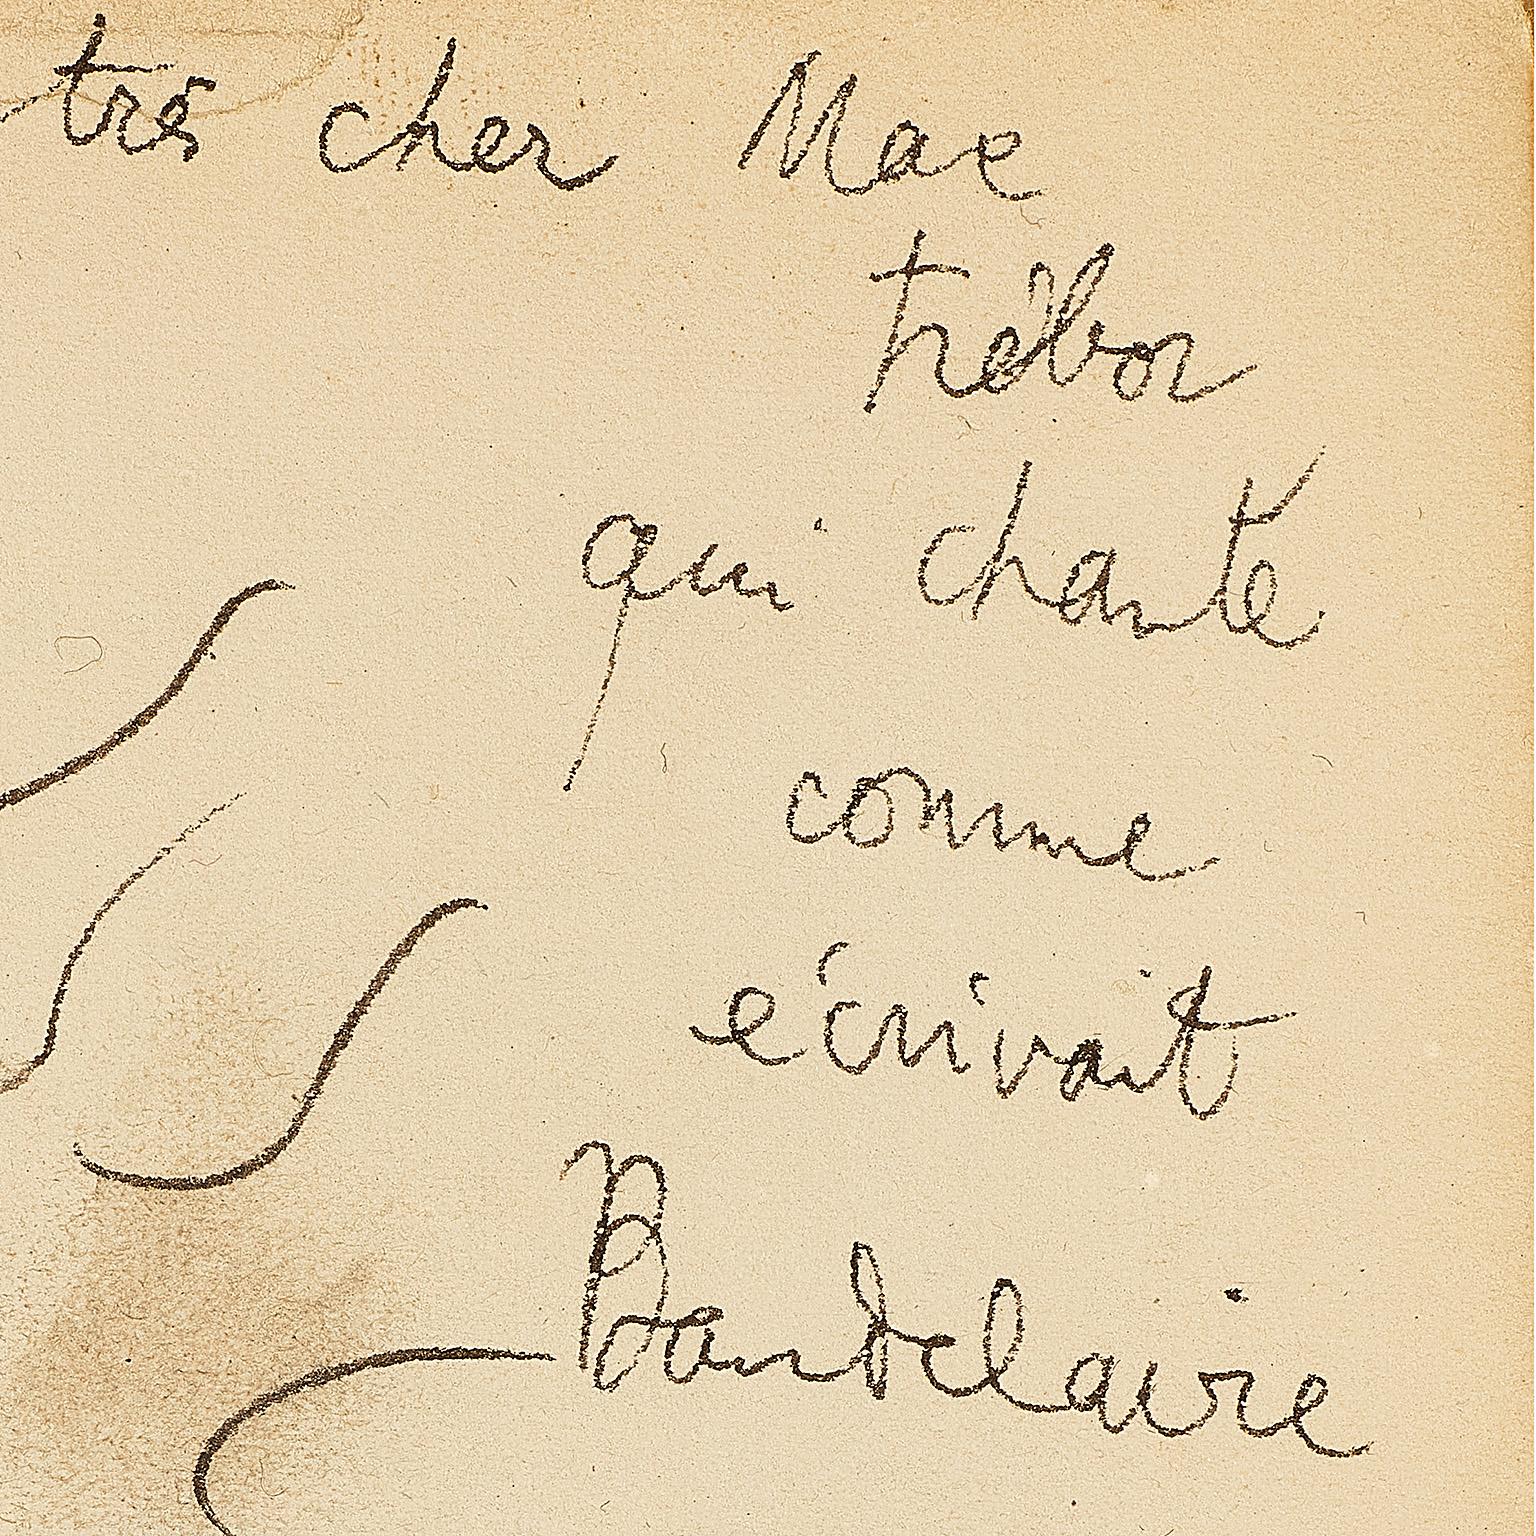 très cher Mac
trébor
qui chante
comme
écrivait
Baudelaire